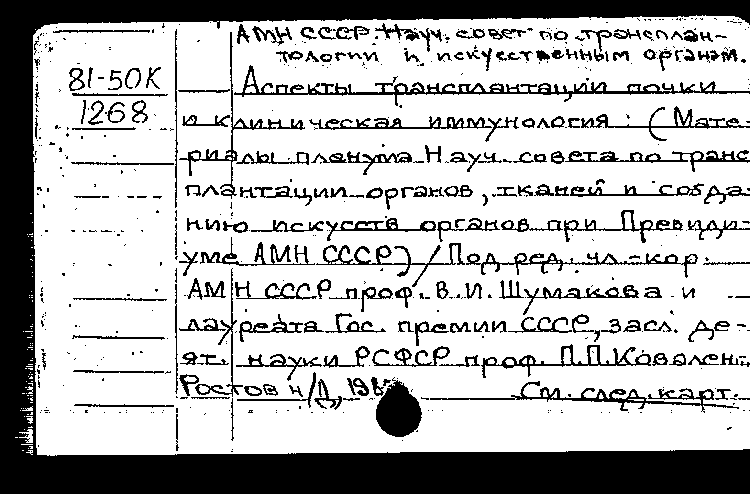 АМН СССР. Науч. совет по трансплан-
тологии и искусственным органам.
81-50К
1268
Аспекты трансплантации почки
и клиническая иммунология : (Мате-
риалы пленума Науч. совета по транс
плантации органов, тканей и созда-
нию искусств органов при Превиди-
уме АМН СССР) / Под ред. чл.-кор.
АМН СССР проф. В.И. Шумакова и
лауреата Гос. премии СССР, засл. де-
ят. науки РСФСР проф. П.П. Коваленк
Ростов н/Д,
См. след. карт.